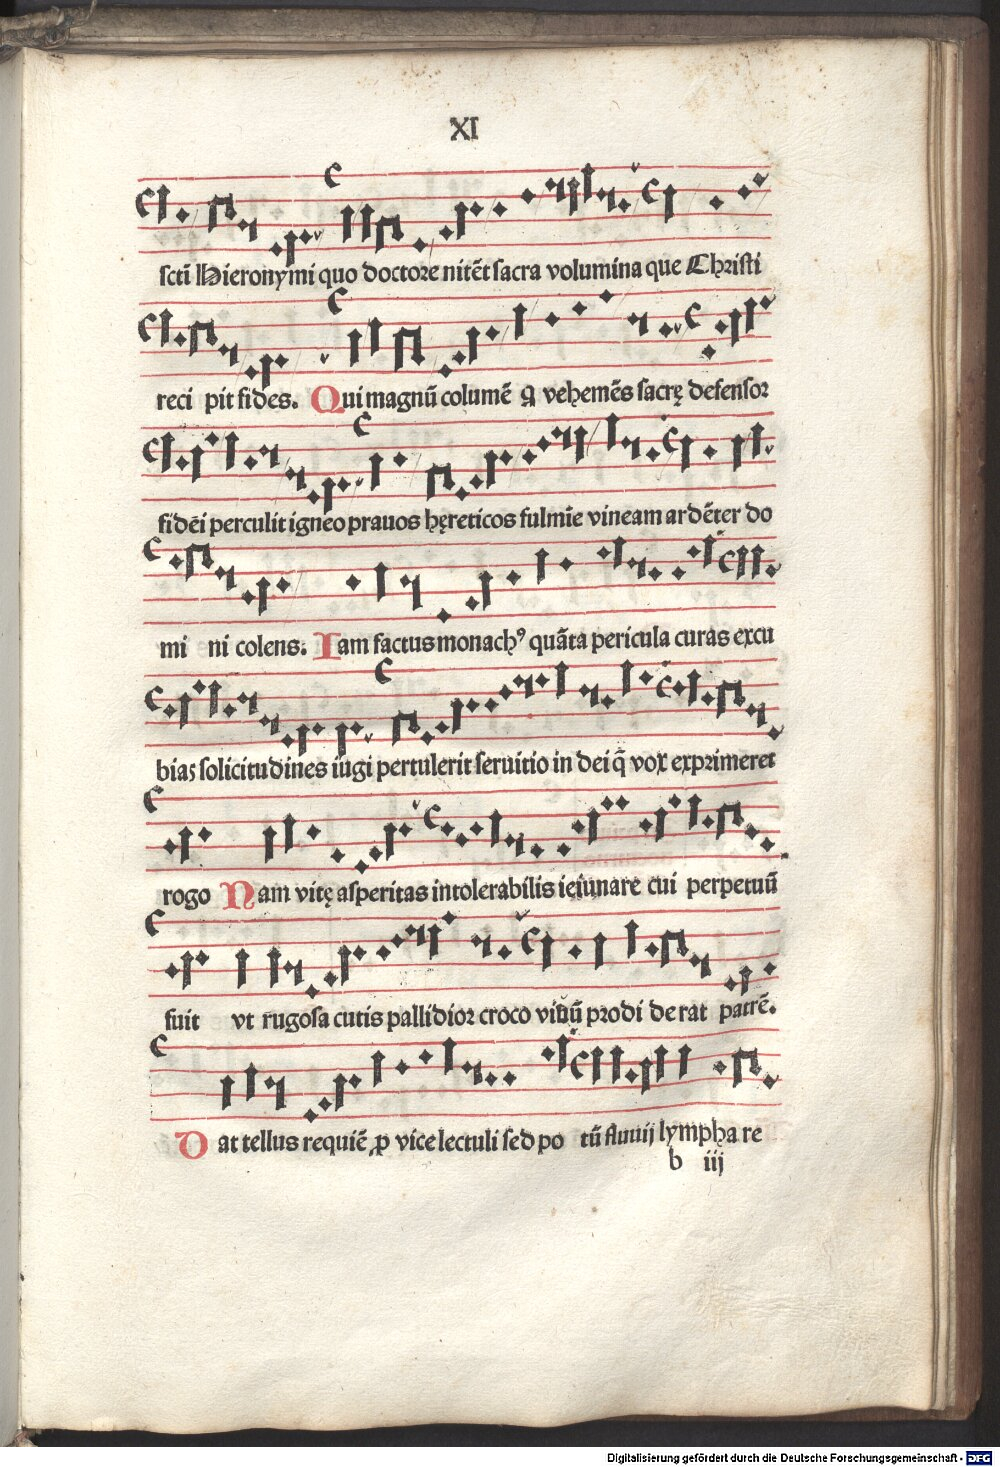 XI
sctū Hieronymi quo doctore nitēt sacra volumina que Christi
reci pit fides. Qui magnū columē q̄ vehemēs sacrę defensor
fidēi perculit igneo prauos hęreticos fulmīe vineam ardēter do
mi ni colens. Iam factus monachꝰ quāta pericula curas excu
bias solicitudines iugi pertulerit seruitio in dei q̄ vox exprimeret
rogo Nam vitę asperitas intolerabilis ieiunare cui perpetuū
fuit vt rugosa cutis pallidior croco viuū prodi derat patrē.
Dat tellus requiē ꝓ vice lectuli sed po tū fluuij lympha re
b iij
Digitalisierung gefördert durch die Deutsche Forschungsgemeinschaft - DFG